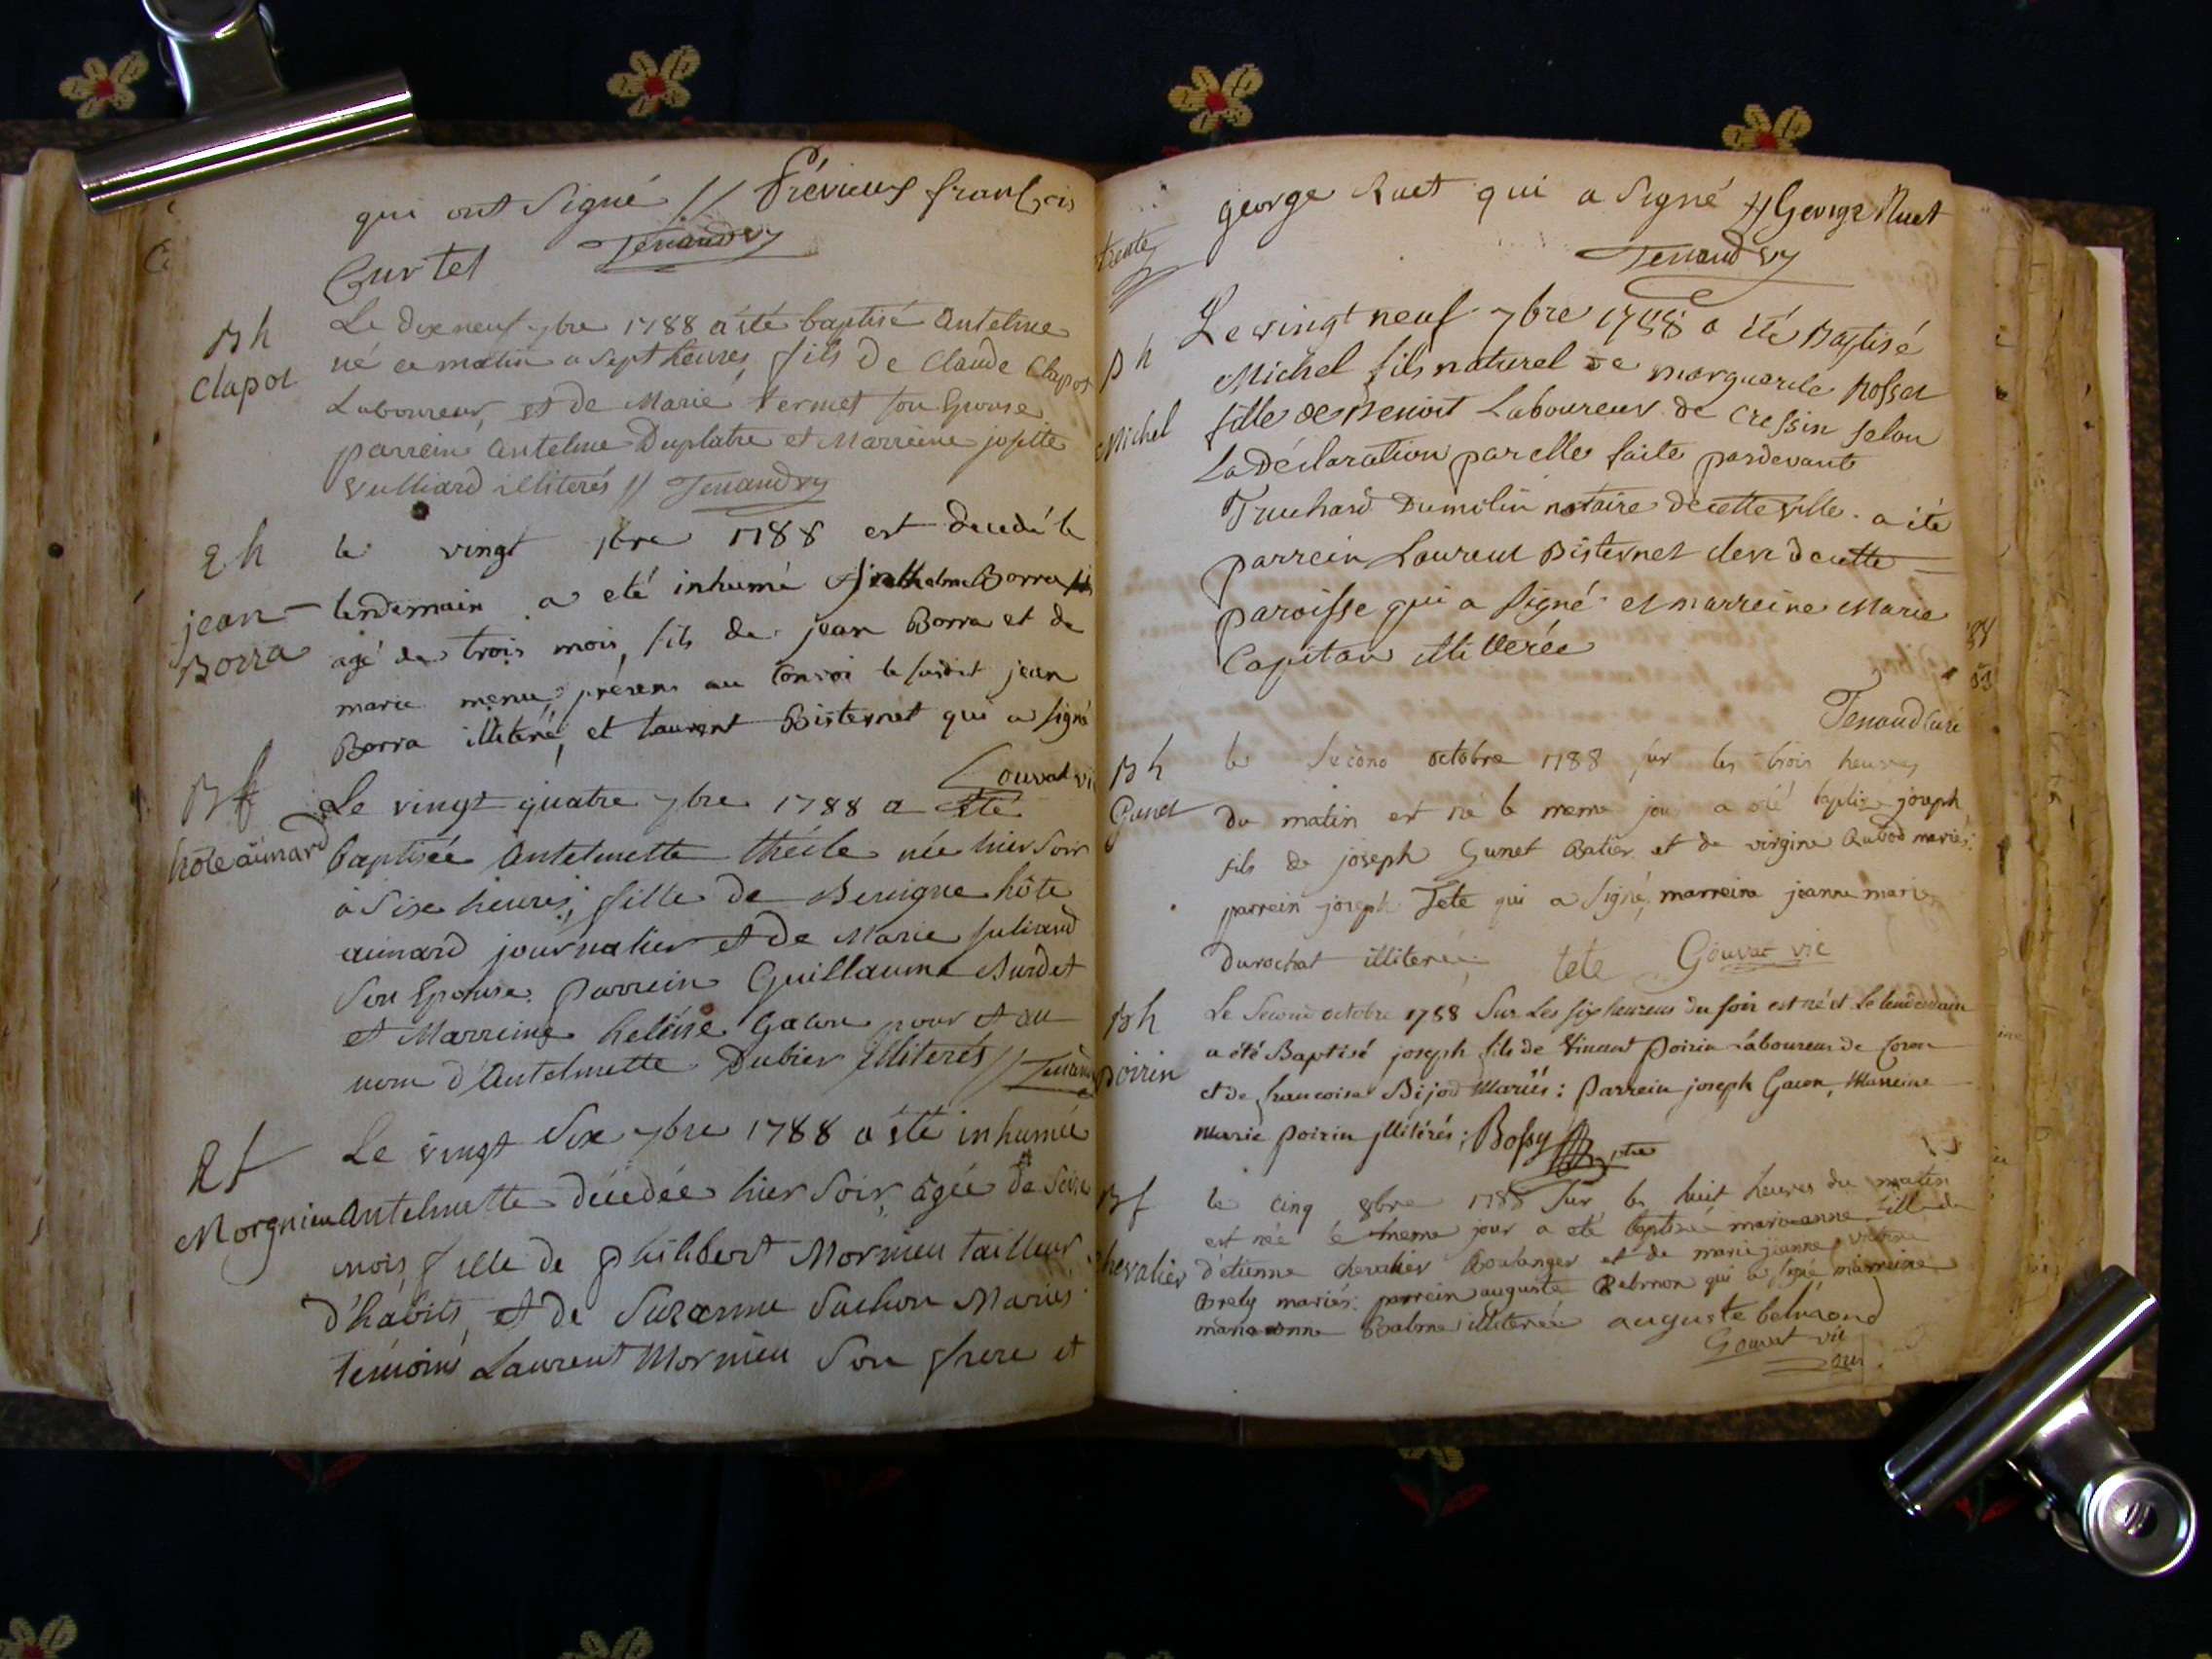 qui ont Signé // Frévieux françois
Curtet Tenand vy
Bh
Clapot
Le dixneuf 7bre 1788 a été baptisé Antelme
né ce matin a Sept heures, fils De Claude Clapot
Laboureur, et de Marie termet son Epouse
parrein Antelme Duplatre et Marreine josette
Vulliard illiterés // Tenand vy
2 h
jean
Borra
le vingt 7bre 1788 est decedé le
lendemain a eté inhumé Anthelme Borra fils
agé de trois mois, fils de jean Borra et de
marie menu, présens au Convoi le susdit jean
Borra illiteré, et Laurent Bisternet qui a signé
Gouvat vi
Bf
hôte aimard
Le vingt quatre 7bre 1788 a été
baptisée Antelmette née hier Soir
à Six heures, fille de Benigne hôte
aimard journalier et de Marie juliand
Son Epouse. Parrein Guillaume Burdet
et Marreine heleine Gacon pour et au
nom d'Antelmette Dubier illiterés //
2f
Morgnieu
Le vingt Six 7bre 1788 a été inhumée
Antelmette décedée hier Soir, âgée de Seize
mois, fille de philibert Mornieu tailleur
d'habits, et de Suzanne Suchon Mariés
témoins Laurent Mornieu Son frere et
george Ruet qui a Signé // George Ruet
Tenand vy
trente
Bh
Michel
Le vingt neuf 7bre 1788 a été Baptisé
Michel fils naturel de marguerite Rosset
fille de Benoit Laboureur de Cressin selon
La Déclaration par elle faite pardevant
Truchard Dumolin notaire de cette ville. a été
parrein Laurent Bisternet clerc de cette
paroisse qui a signé et marreine Marie
Capitan illiterée
Tenand curé
Bh
Gunet
le second octobre 1788 sur les trois heures
du matin est né le meme jour a été baptisé joseph
fils de joseph Gunet Batier et de virgine Aubod mariés:
parrein joseph Tete qui a Signé, marreine jeanne marie
Durochat illiterée. tete Gouvat vic
Bh
poirin
Le Second octobre 1788 Sur Les six heures du soir est né et Le lendemain
a été Baptisé joseph fils de Vincent Poirin Laboureur de Coron
et de francoise Bijod Mariés: Parrein joseph Gacon, Marreine
Marie Poirin illitérés; Bossy ptre
Bf
chevalier
le cinq 8bre 1788 Sur les huit heures du matin
est née le meme jour a eté baptisée marieanne fille de
d'etienne chevalier Boulanger et de marie jeanne
Brely mariés: parrein auguste Belmon qui a signé, marreine
marieanne Balme illiterée auguste belmond
Gouvat vic